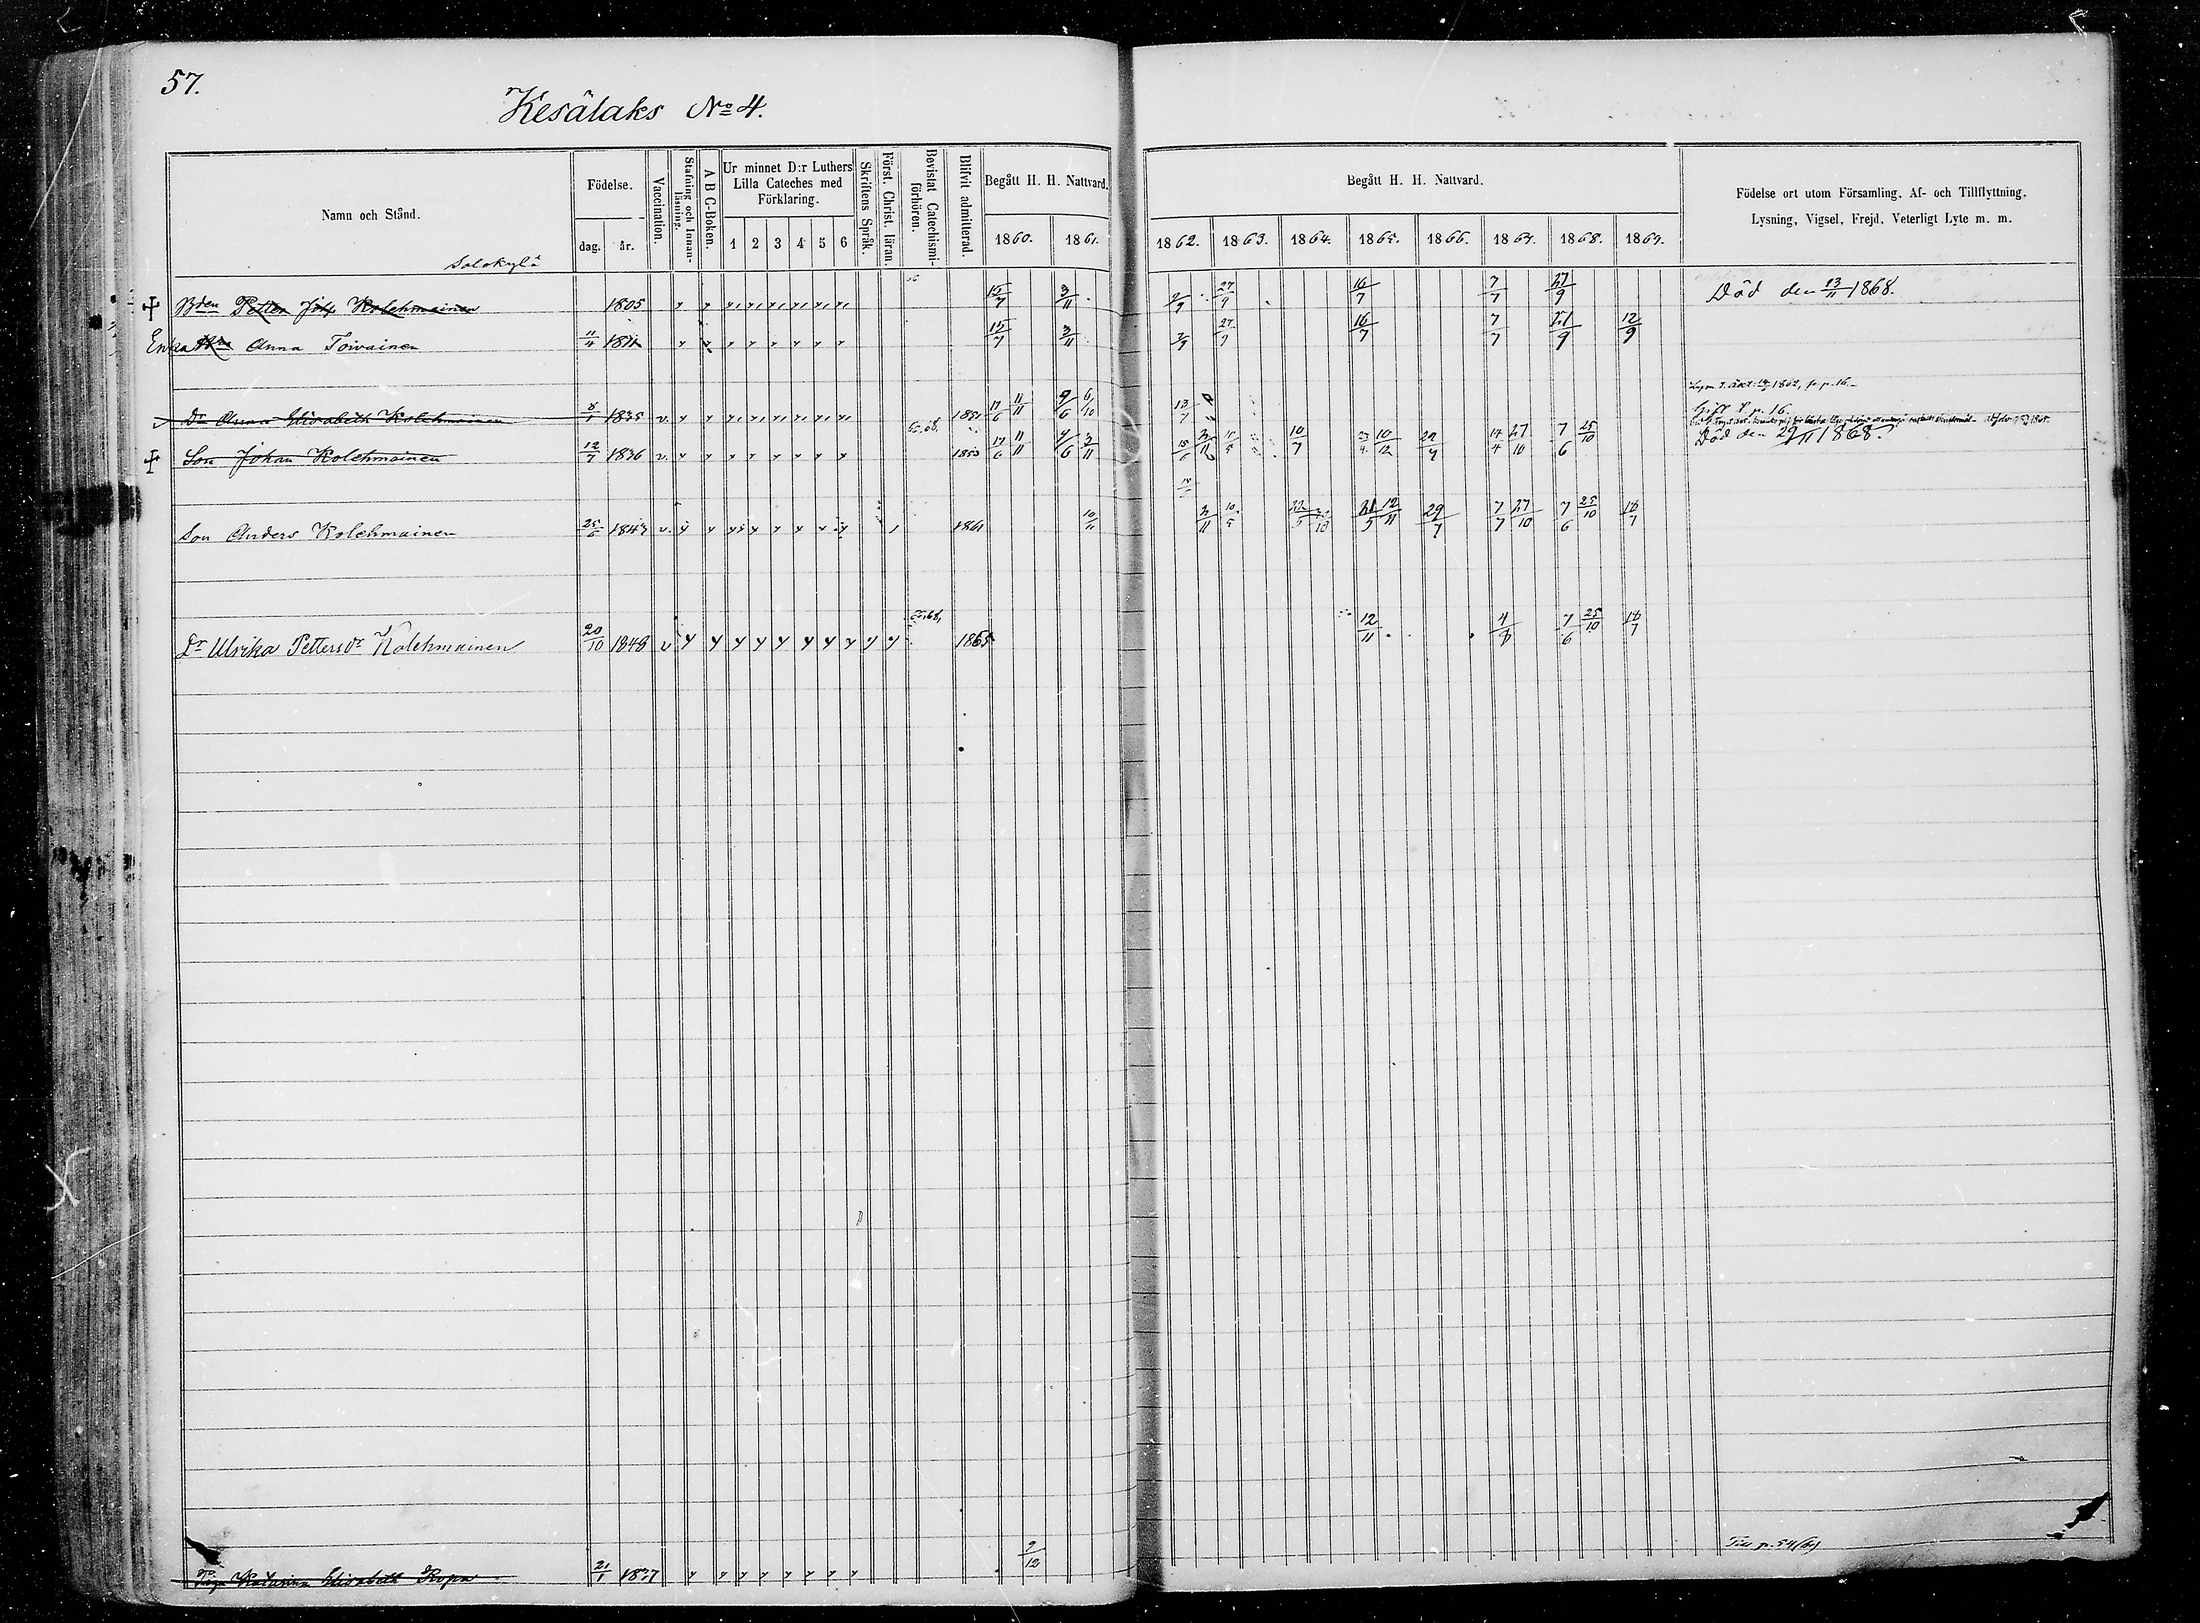 57.
Kesälaks No 4.
Namn och Stånd.
Födelse.
dag. år.
Vaccination.
Stafning och Innanläsning.
A B C-Boken.
Ur minnet D:r Luthers Lilla Cateches med Förklaring.
1 2 3 4 5 6
Skriftens Språk.
Först. Christ. läran.
Bevistat Catechismiförhören.
Blifvit admitterad.
Begått H. H. Nattvard.
1860. 1861.
Begått H. H. Nattvard.
1862. 1863. 1864. 1865. 1866. 1867. 1868. 1869.
Födelse ort utom Församling, Af- och Tillflyttning.
Lysning, Vigsel, Frejd, Veterligt Lyte m. m.
Salokylä
Bden Petter Kolehmainen 1805 15/7 3/11 27/9 16/7 7/7 27/9 Död den 23/11 1868.
Enka Anna Toivainen 11/11 1811 15/7 3/11 27/9 16/7 7/7 27/9 12/9
Dr Anna Elisabeth Kolehmainen 1835 v. 1851 17/6 11/11 9/6 6/10 13/7
Gift p. 16.
Son Johan Kolehmainen 12/7 1836 v. 1853 17/6 11/11 9/6 3/11 10/7 10/12 29/7 14/4 27/10 7/6 25/10 Död den 29/11 1868.
Son Anders Kolehmainen 25/6 1843 v. 1861 10/11 3/11 10/5 21/5 12/11 29/7 7/7 27/10 7/6 25/10 18/7
Dr Ulrika Pettersdr Kolehmainen 20/10 1848 v 1865 12/11 4/8 7/6 25/10 18/7
Piga Katarina Elisabeth Ropa 21/1 1837 9/12 Till p. 54